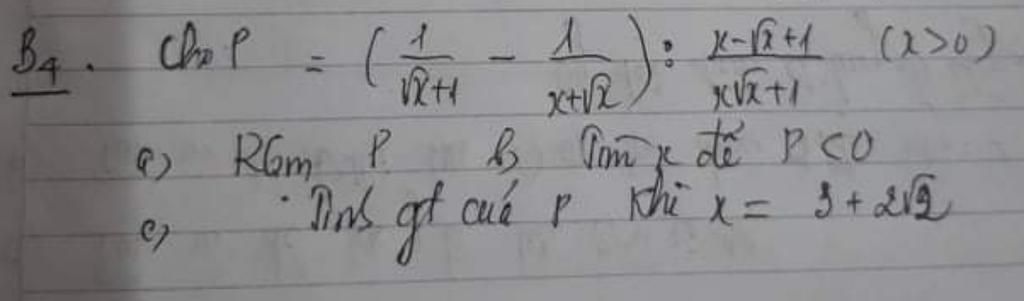 B4. Cho P = ( 1/(√x+1) - 1/(x+√x) ) : (x-√x+1)/(x√x+1) (x>0)
a) RGm P b, Tìm x để P<0
c, Tính gt của P khi x = 3+2√2